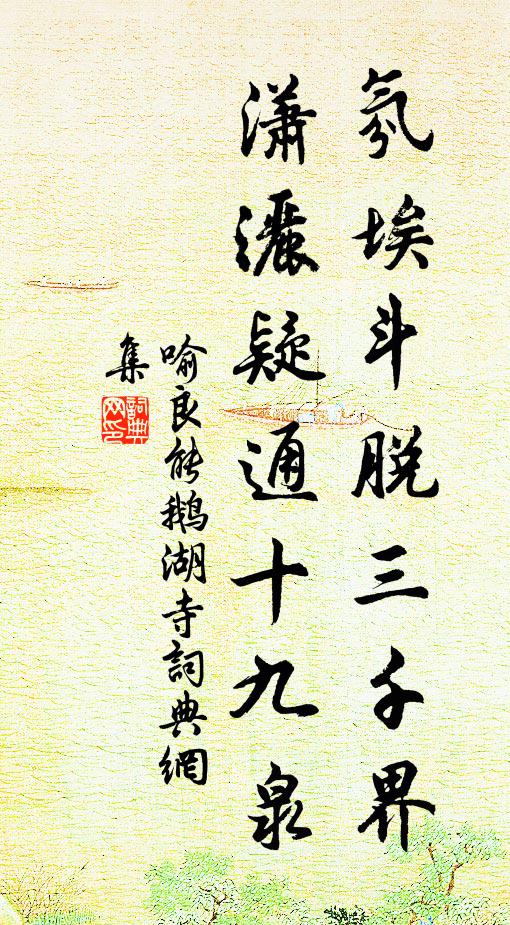 氛埃斗脱三千界
瀟灑疑通十九泉
喻良能鵝湖寺詞典網
集
詞典
网印